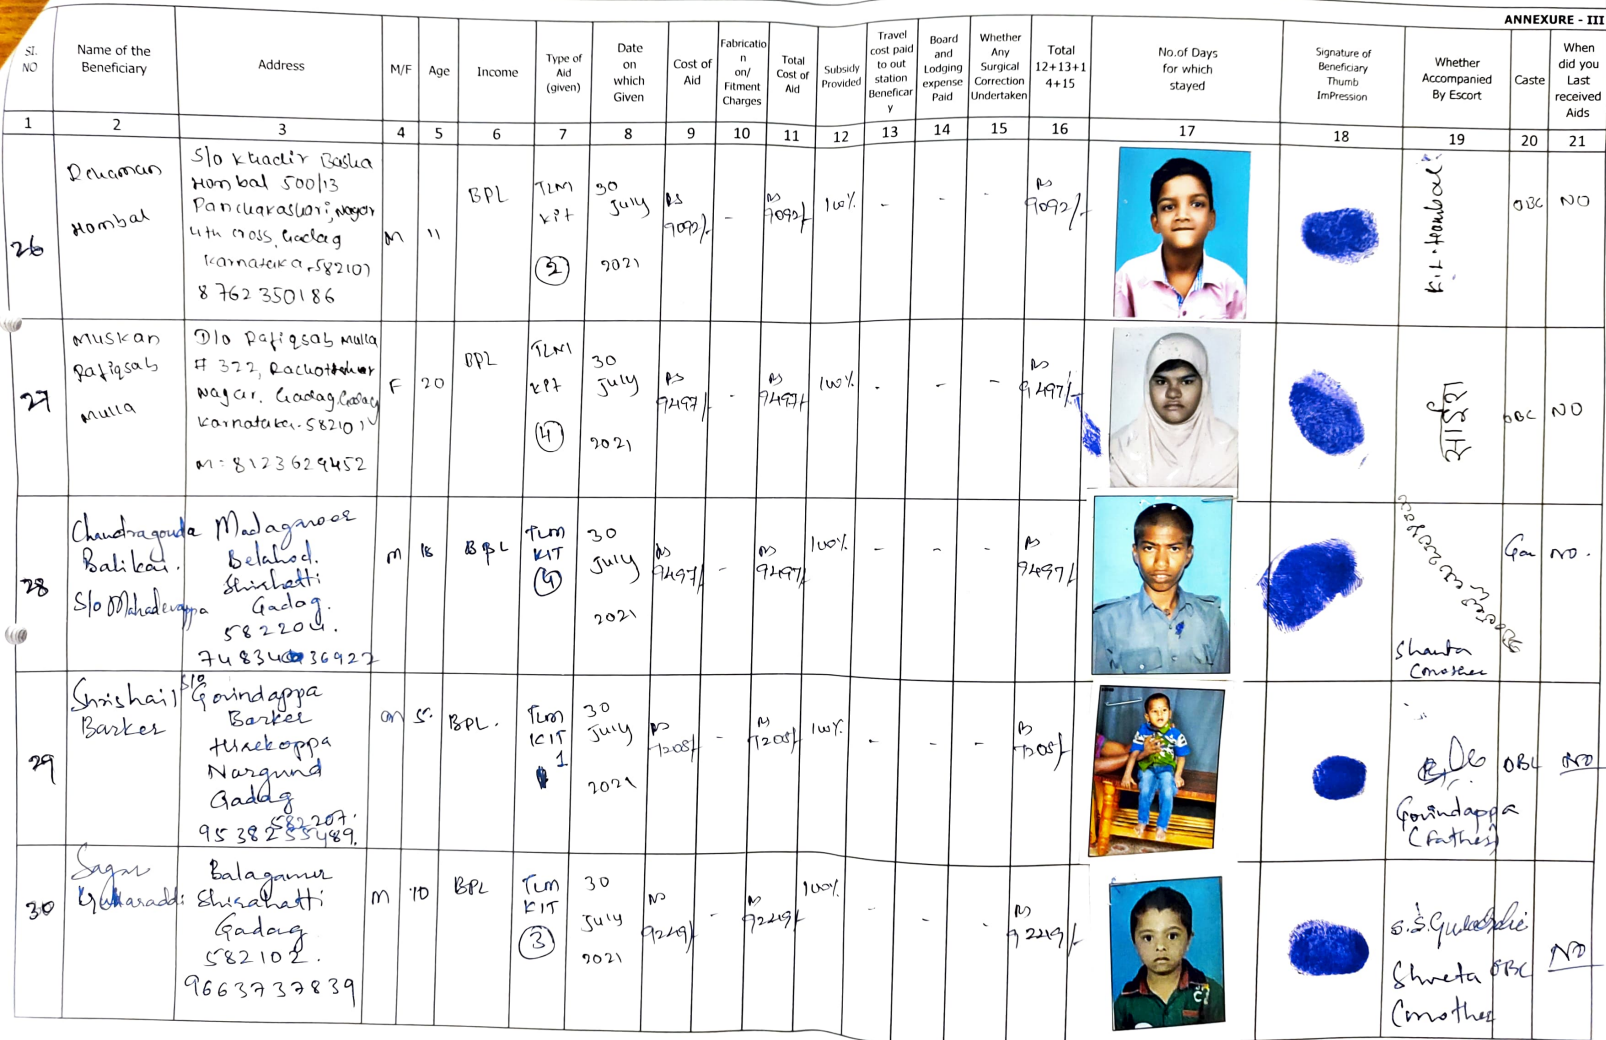 ANNEXURE - III
Sl. NO
Name of the Beneficiary
Address
M/F
Age
Income
Type of Aid (given)
Date on which Given
Cost of Aid
Fabricatio n on/ Fitment Charges
Total Cost of Aid
Subsidy Provided
Travel cost paid to out station Beneficar y
Board and Lodging expense Paid
Whether Any Surgical Correction Undertaken
Total 12+13+1 4+15
No.of Days for which stayed
Signature of Beneficiary Thumb ImPression
Whether Accompanied By Escort
Caste
When did you Last received Aids
1 2 3 4 5 6 7 8 9 10 11 12 13 14 15 16 17 18 19 20 21
26
Rehaman
Hombal
S/o Khadir Basha
Hombal 500/13
Nagar
4th cross, Gadag
Karnataka, 582101
8762350186
M 11 BPL
TLM
Kit
2
30
July
2021
Rs
9092/-
-
Rs
9092/-
100%
- - -
Rs
9092/-
OBC NO
27
Muskan
Rafiqsab
Mulla
D/o Rafiqsab Mulla
# 322,
Nagar. Gadag Gadag
Karnataka-582101
M: 8123629452
F 20 BPL
TLM
Kit
4
30
July
2021
Rs
9497/-
-
Rs
9497/-
100%
- - -
Rs
9497/-
OBC NO
28
Chandragouda
Balikai.
S/o Mahadevappa
Belahod.
Gadag.
582204.
M 18 BPL
TLM
KIT
4
30
July
2021
Rs
9497/-
-
Rs
9497/-
100%
- - -
Rs
9497/-
Shanta
NO.
29
Shrishail
Barker
S/o Govindappa
Barker
Hirekoppa
Nargund
Gadag
582207.
9538255489.
M 5. BPL.
TLM
KIT
1
30
July
2021
Rs
7205/-
-
Rs
7205/-
100%
- - -
Rs
7205/-
Govindappa
(Father)
OBC NO
30
Sagar
Shirahatti
Gadag
582102.
9663737839
M 10 BPL
TLM
KIT
3
30
July
2021
Rs
9249/-
-
Rs
9249/-
100%
- - -
Rs
9249/-
Shweta
(mother
OBC NO